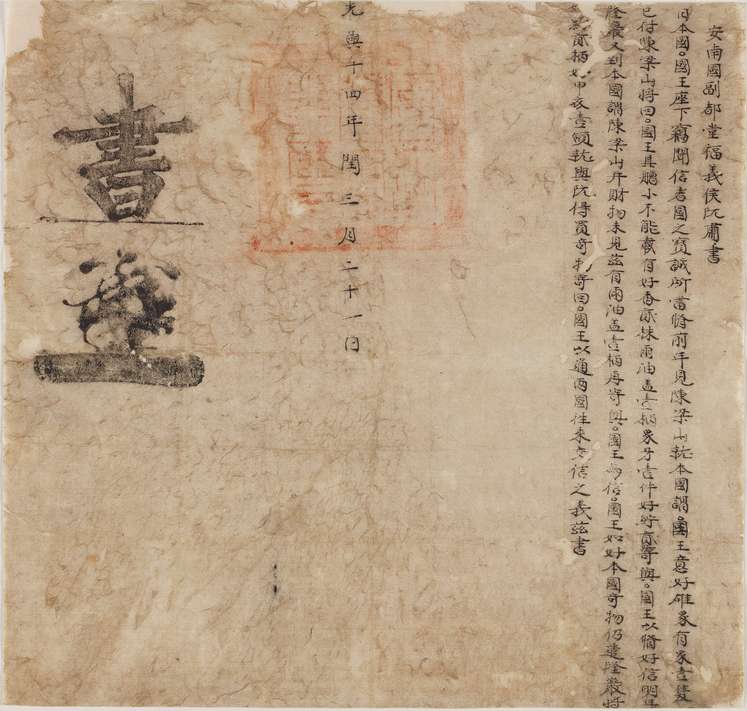 安南國副都堂福義侯阮肅書
日本國。國王座下竊聞信者國之寳誠所當脩前年見陳梁山就本國謂。國王意好雄象有象壹隻
已付陳梁山將回。國王其艚小不能載有好香亦株雨油盖壹柄象牙壹件好紵亦寄與。國王以脩好信明年
隆嚴又到本國謂陳梁山并財物未見茲有雨油盖壹柄再寄與。國王為信。國王如好本國奇物仍遣隆嚴將
亦柄好甲衣壹領就與阮得買奇物寄回。國王以通兩國往來交信之義茲書
光興十四年閏三月二十一日
書